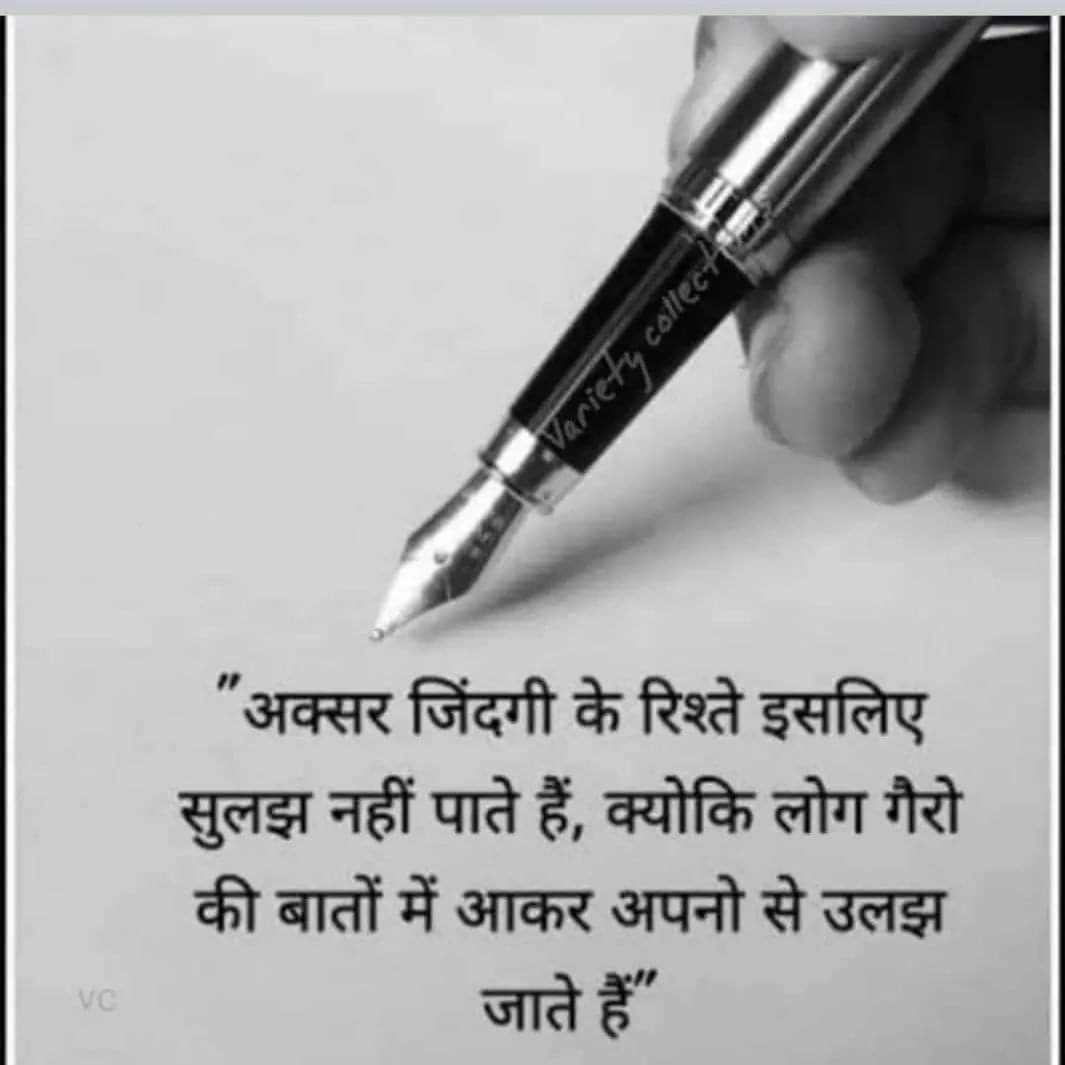 Variety collect
"अक्सर जिंदगी के रिश्ते इसलिए
सुलझ नहीं पाते हैं, क्योकि लोग गैरो
की बातों में आकर अपनो से उलझ
जाते हैं"
VC